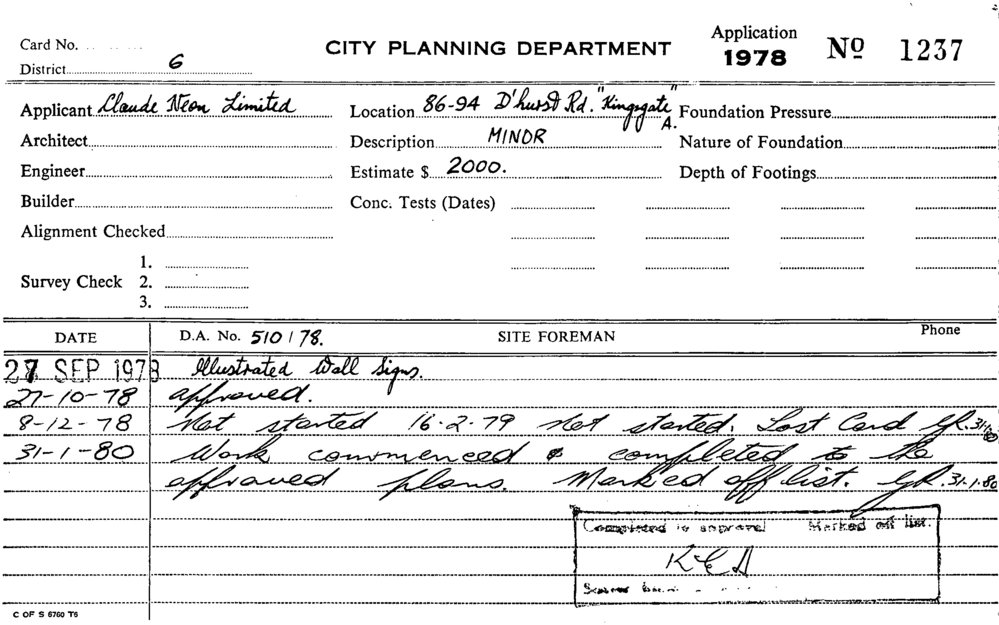 Card No.
District 6
CITY PLANNING DEPARTMENT
Application
1978 No 1237
Applicant Claude Neon Limited
Location 86-94 D'hurst Rd. "Kingsgate"
A.
Foundation Pressure
Architect
Description MINOR
Nature of Foundation
Engineer
Estimate $ 2000.
Depth of Footings
Builder
Conc. Tests (Dates)
Alignment Checked
Survey Check 1.
2.
3.
DATE D.A. No. 510 / 78. SITE FOREMAN Phone
27 SEP 1978 Illustrated Wall Signs.
27-10-78 approved.
8-12-78 Not started 16.2.79 Not started. Lost Card
31-1-80 Work commenced & completed to the
approved plans. Marked off list. 31.1.80
Completed as approval Marked off list.
C OF S 6760 T6